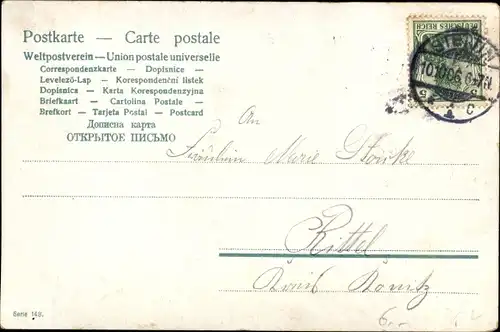 Postkarte — Carte postale
Weltpostverein — Union postale universelle
Correspondenzkarte — Dopisnice —
Levelező-Lap — Korespondenční lístek
Dopisnica — Karta Korespondenzyjna
Briefkaart — Cartolina Postale —
Brefkort — Tarjeta Postal — Postcard
Дописна карта
ОТКРЫТОЕ ПИСЬМО
DEUTSCHES REICH
STETTIN
5
5
C
An
Fräulein Marie
Rittel
Kreis Konitz
Serie 149.